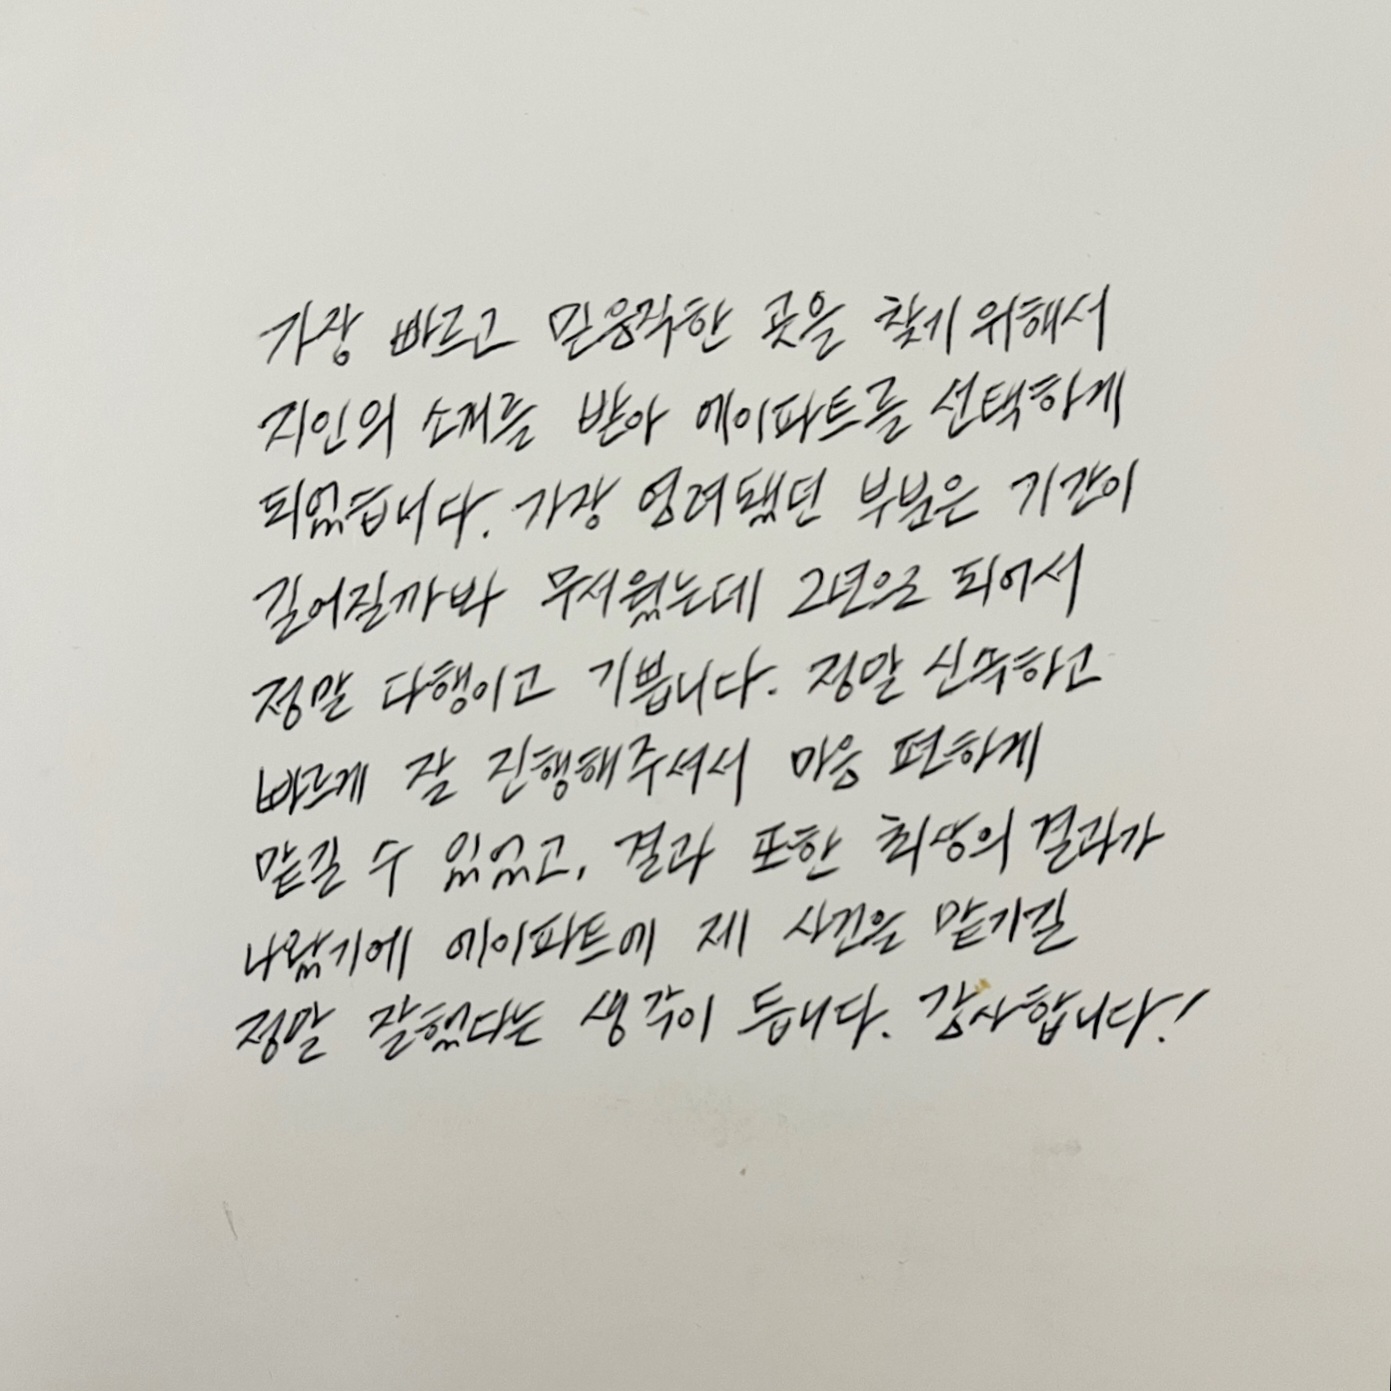 가장 빠르고 믿음직한 곳을 찾기 위해서
지인의 소개를 받아 에이파트를 선택하게
되었습니다. 가장 염려됐던 부분은 기간이
길어질까봐 무서웠는데 2년으로 되어서
정말 다행이고 기쁩니다. 정말 신속하고
빠르게 잘 진행해주셔서 마음 편하게
맡길 수 있었고, 결과 또한 최상의 결과가
나왔기에 에이파트에 제 사건을 맡기길
정말 잘했다는 생각이 듭니다. 감사합니다!